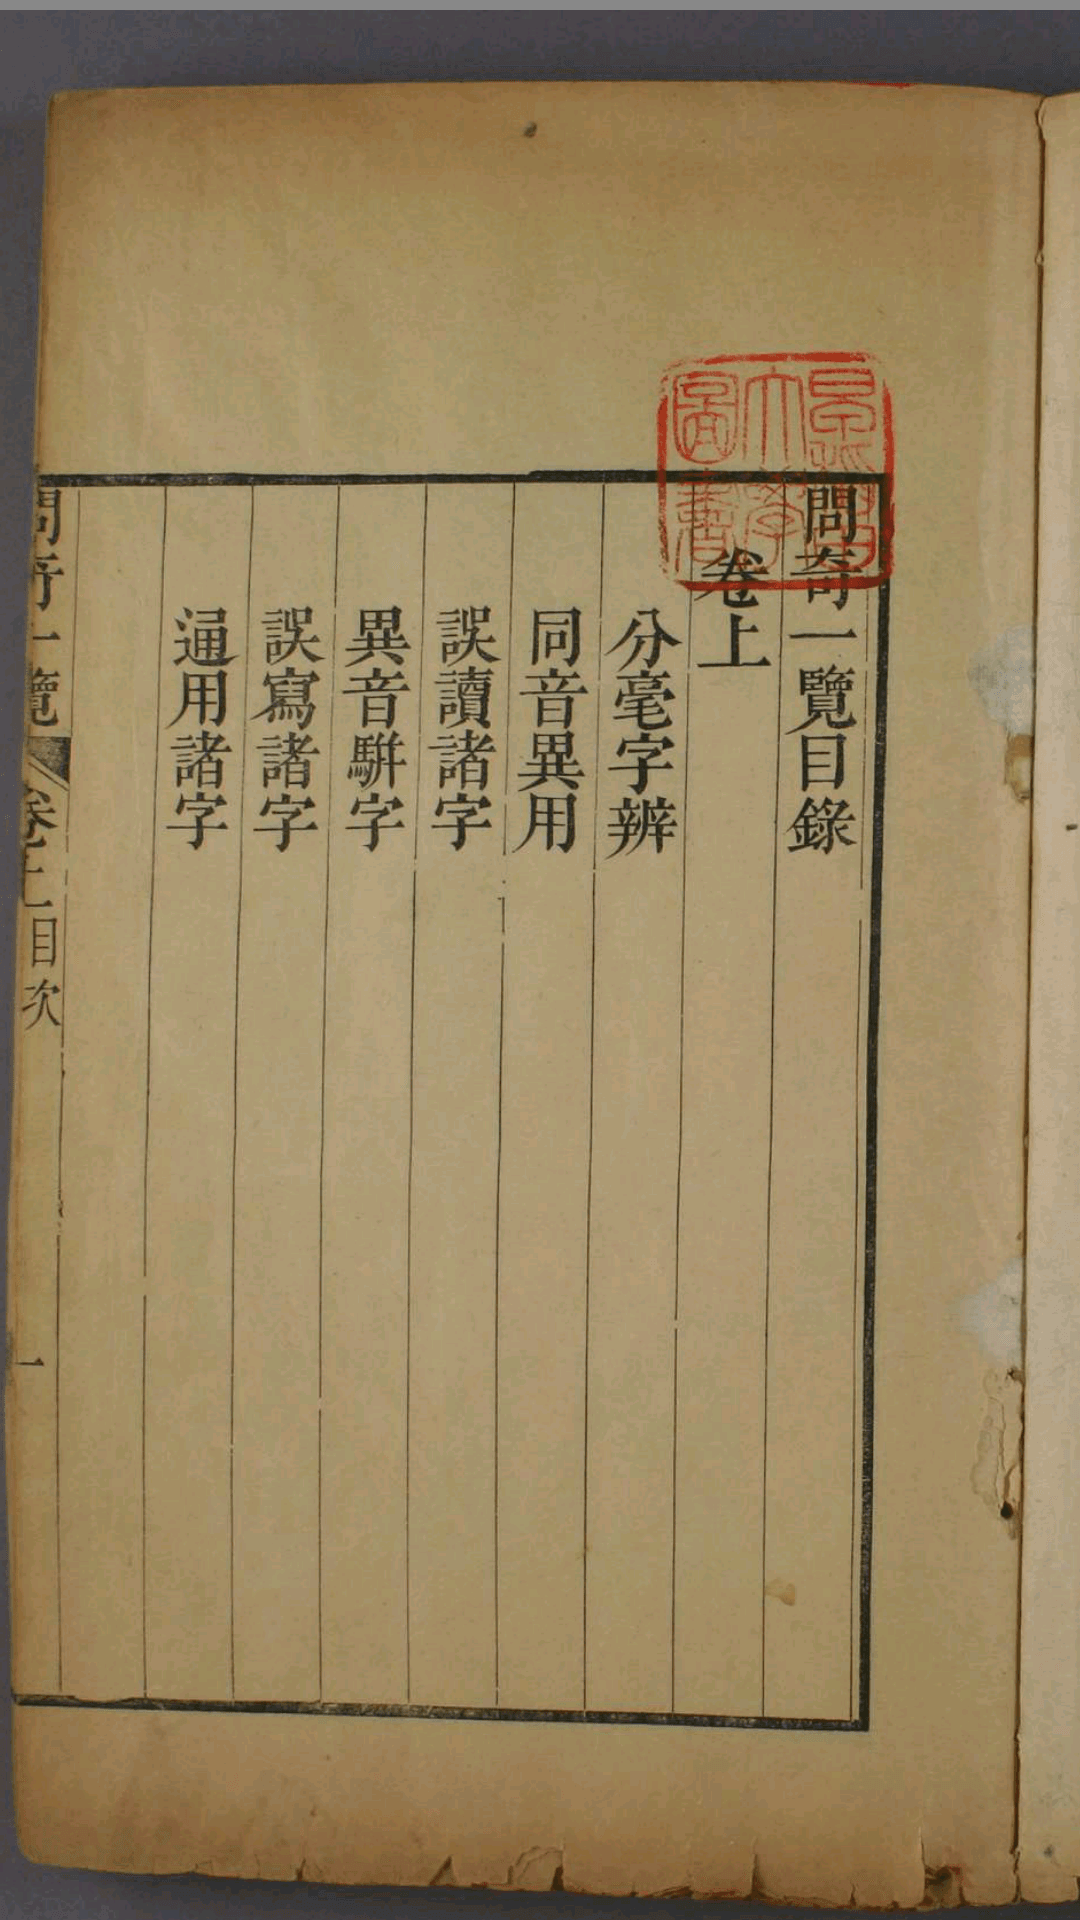 問奇一覽目錄
卷上
分毫字辨
同音異用
誤讀諸字
異音駢字
誤寫諸字
通用諸字
問奇一覽
卷上目次
一